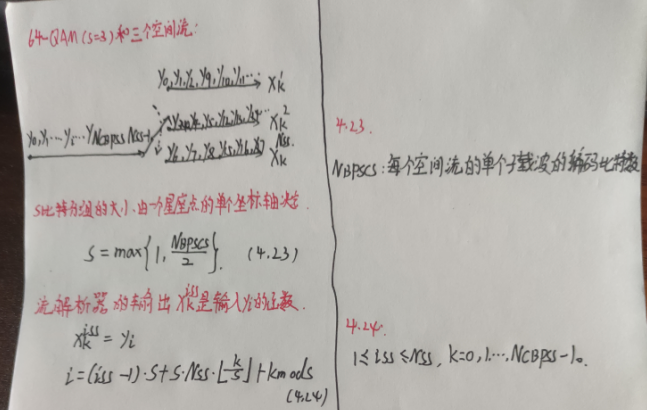 64-QAM(S=3)和三个空间流:
y0,y1,y2,y9,y10,y11… Xk^1
y3,y4,y5,y2,y3,y4… Xk^2
y0,y1…y5…yNCBPSS NSS-1
y6,y7,y8,y5,y6,y7 Xk^NSS
S比特分组的大小由一个星座点的单个坐标轴决定.
S=max{1, NBPSCS/2}. (4.23)
流解析器的输出Xk^iss是输入yi的函数.
Xk^iss=yi
i=(iss-1)·S+S·NSS·⌊k/S⌋+kmodS
(4.24)
4.23.
NBPSCS:每个空间流的单个子载波的编码比特数
4.24.
1≤iss≤NSS, k=0,1,…,NCBPSS-1。